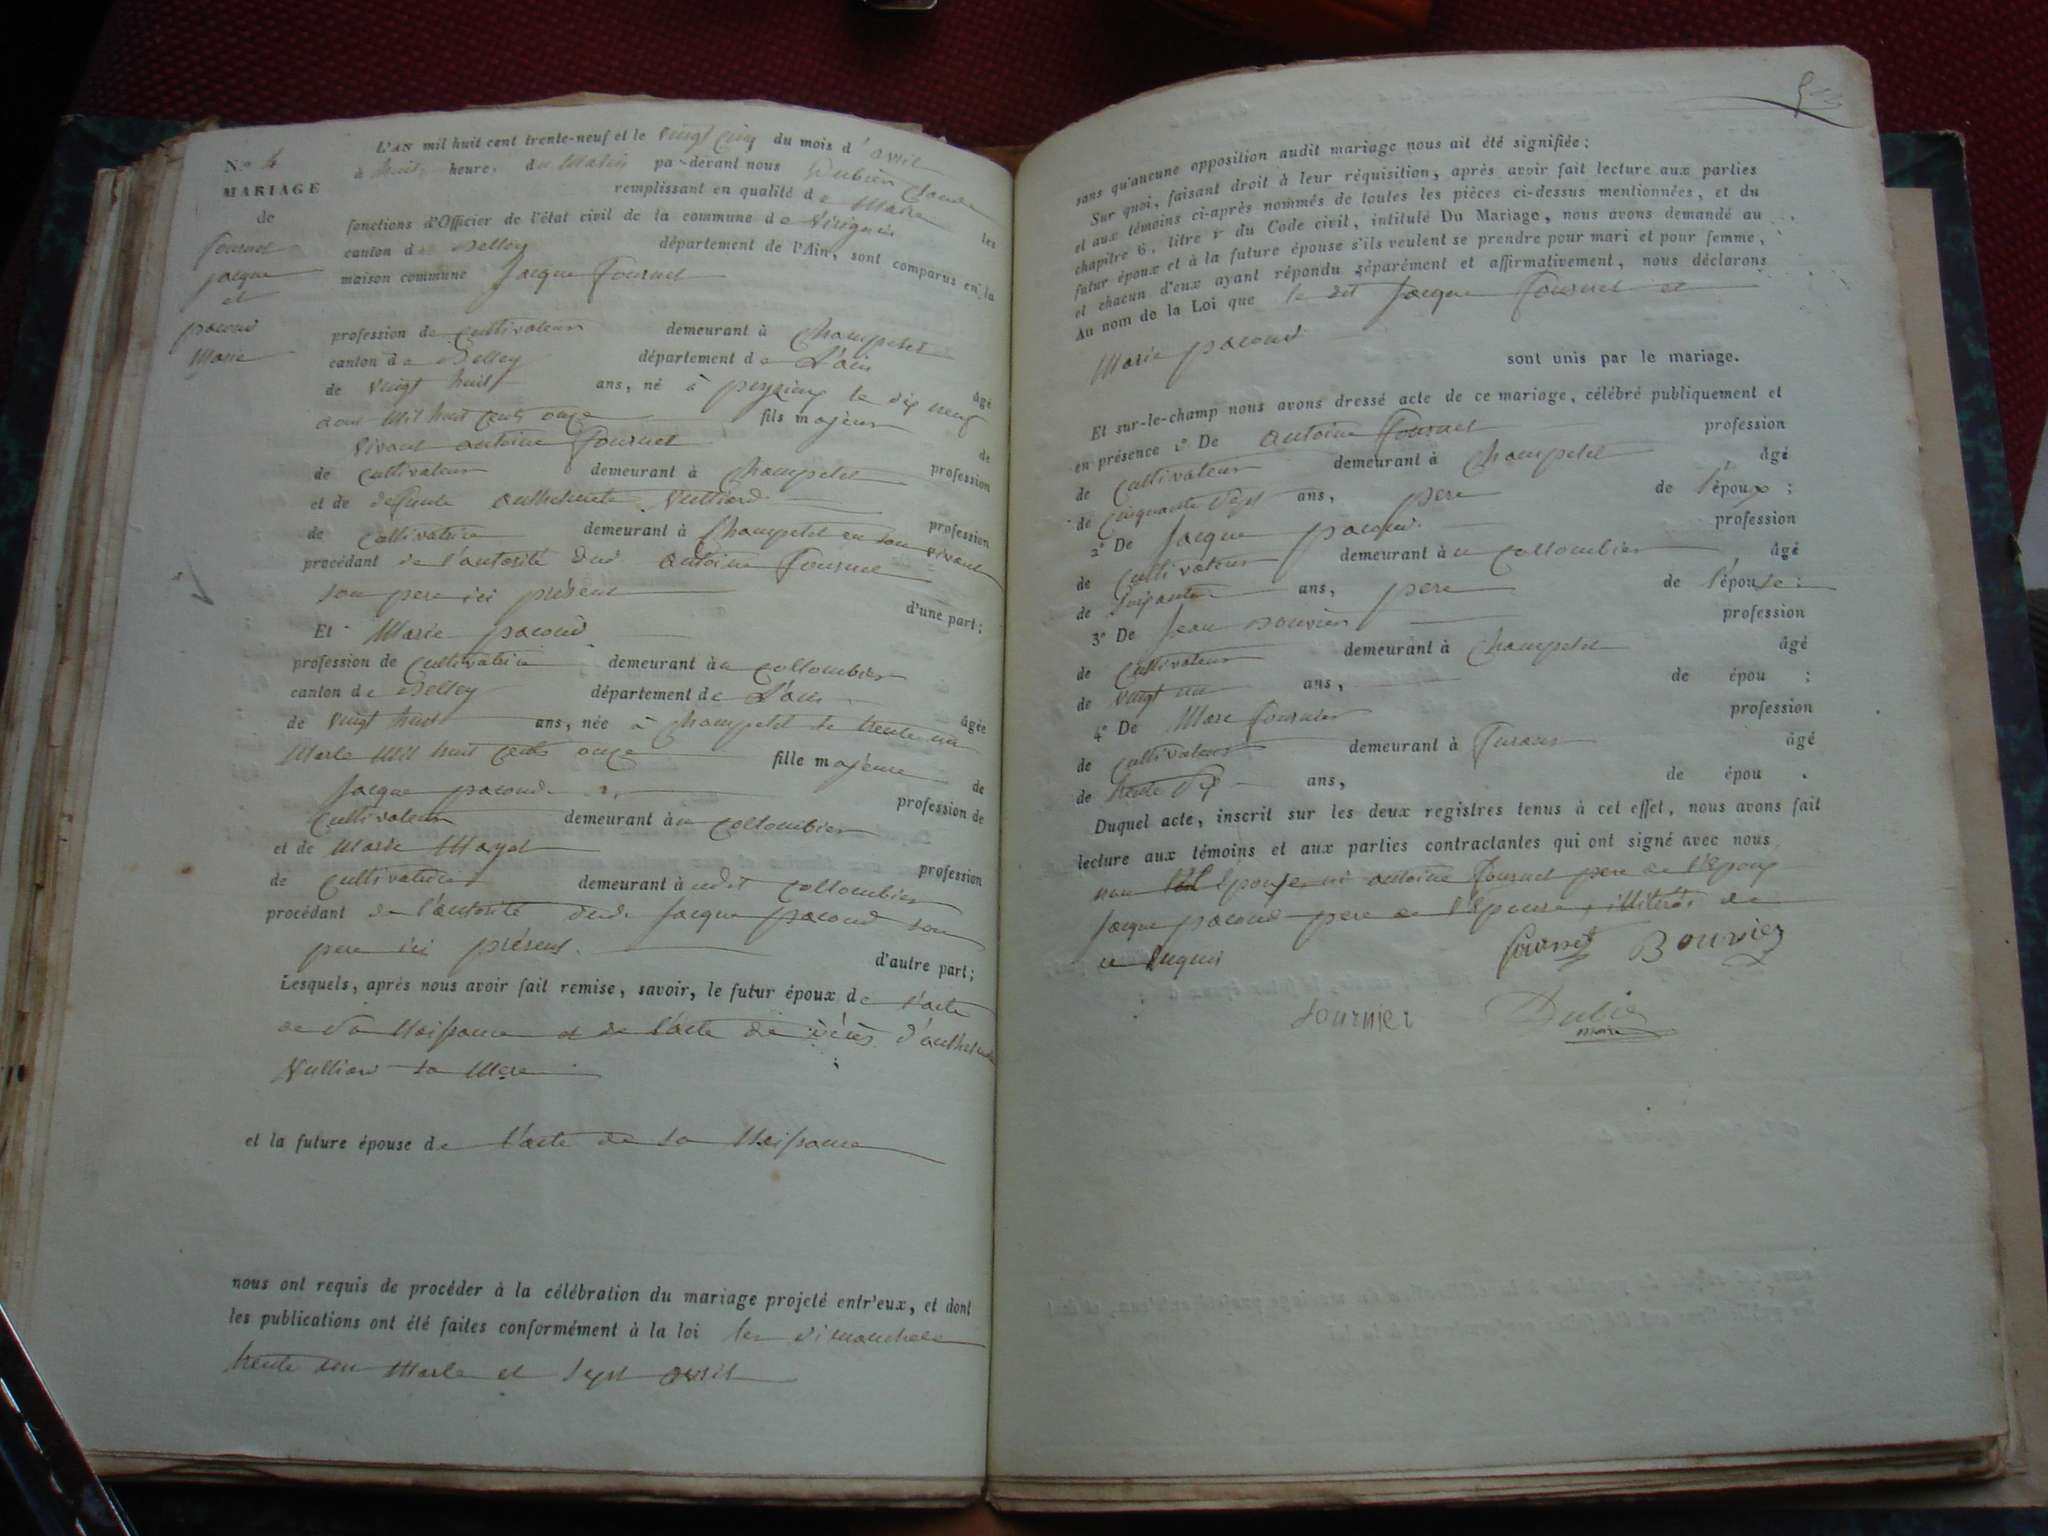 L'AN mil huit cent trente-neuf et le vingt cinq du mois d'avril
N.o 4
à huit heure, du Matin par-devant nous Dubien Claude
MARIAGE
remplissant en qualité de Maire les
de
fonctions d'Officier de l'état civil de la commune de Virignin
Fournet
canton de Belley département de l'Ain, sont comparus en la
Jacque
maison commune Jacque Fournet
et
pacoud
Marie
profession de Cultivateur demeurant à Champetel
canton de Belley département de L'ain âgé
de vingt huit ans, né à peyzieux le dix neuf
aout Mil huit cents onze fils majeur de
vivant antoine Fournet profession
de Cultivateur demeurant à Champetel
et de defunte anthelmette Vulliard profession
de Cultivatrice demeurant à Champetel en son vivant
procédant de l'autorité dud antoine Fournet
son pere ici présent d'une part;
Et Marie pacoud
profession de Cultivatrice demeurant à au collombier
canton de Belley département de L'ain âgée
de vingt huit ans, née à Champetel le trente un
Marle Mil huit cents onze fille majeure de
Jacque pacoud profession de
Cultivateur demeurant à au collombier
et de Marie Mayet profession
de Cultivatrice demeurant à udit collombier
procédant de l'autorité dud. Jacque pacoud son
pere ici présent. d'autre part;
Lesquels, après nous avoir fait remise, savoir, le futur époux de l'acte
de sa Naissance et de l'acte de décès d'anthelmette
Vulliard sa Mere
et la future épouse de l'acte de sa Naissance
nous ont requis de procéder à la célébration du mariage projeté entr'eux, et dont
les publications ont été faites conformément à la loi les dimanches
trente un Marle et sept avril
sans qu'aucune opposition audit mariage nous ait été signifiée;
Sur quoi, faisant droit à leur réquisition, après avoir fait lecture aux parties
et aux témoins ci-après nommés de toutes les pièces ci-dessus mentionnées, et du
chapitre 6, titre v du Code civil, intitulé Du Mariage, nous avons demandé au
futur époux et à la future épouse s'ils veulent se prendre pour mari et pour femme,
et chacun d'eux ayant répondu séparément et affirmativement, nous déclarons
Au nom de la Loi que le dit Jacque Fournet et
Marie pacoud sont unis par le mariage.
Et sur-le-champ nous avons dressé acte de ce mariage, célébré publiquement et
en présence 1° De antoine Fournet profession
de Cultivateur demeurant à Champetel âgé
de Cinquante sept ans, pere de l'époux;
2° De Jacque pacoud profession
de Cultivateur demeurant à u collombier âgé
de soixante ans, pere de l'épouse;
3° De Jean bouvier profession
de Cultivateur demeurant à Champetel âgé
de vingt un ans, de épou ;
4° De Marc Fournier profession
de Cultivateur demeurant à Furans âgé
de trente Six ans, de épou .
Duquel acte, inscrit sur les deux registres tenus à cet effet, nous avons fait
lecture aux témoins et aux parties contractantes qui ont signé avec nous
non l'épouse ni antoine Fournet pere de l'époux
Jacque pacoud pere de l'épouse, illiterés de
ce Enquis
Fournet Bouvier
Fournier Dubien
maire